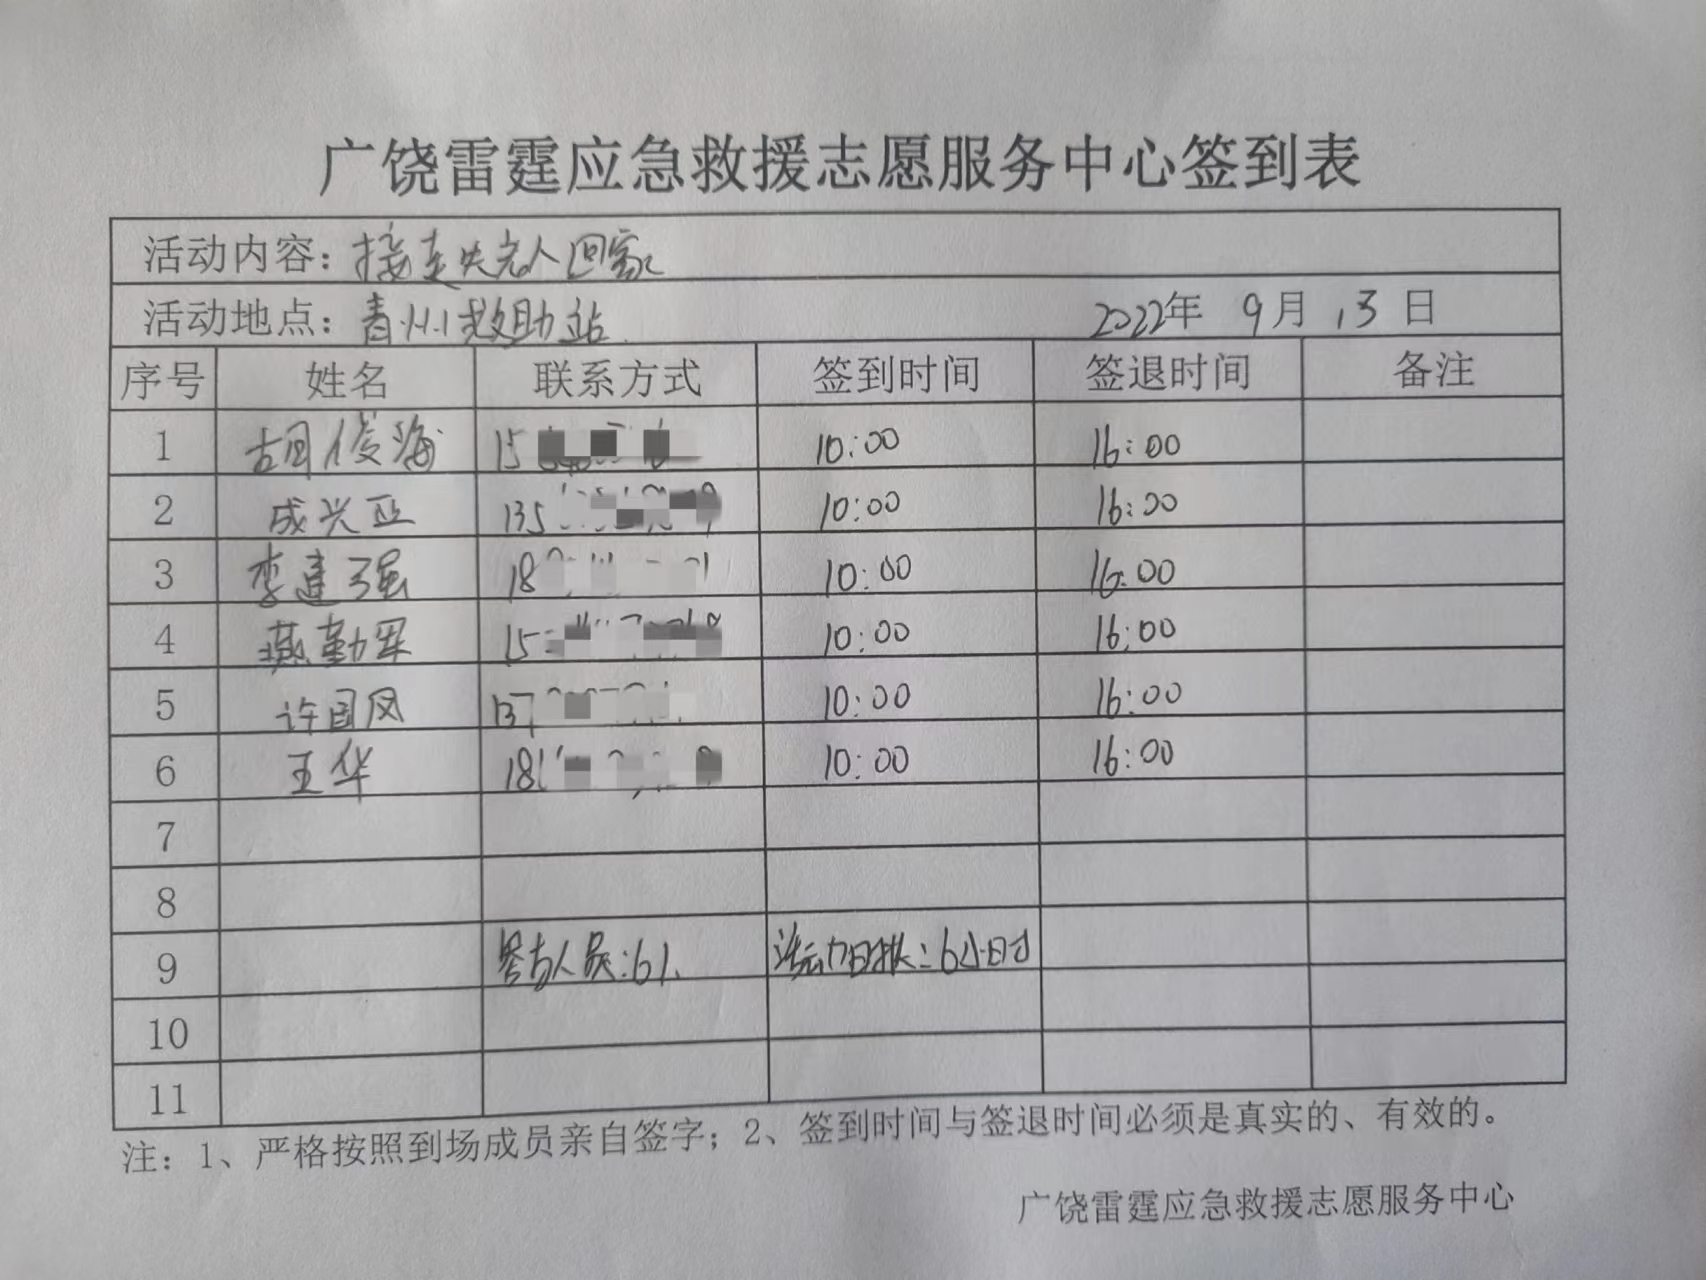 广饶雷霆应急救援志愿服务中心签到表
活动内容：接走失老人回家
活动地点：青州救助站 2022年 9月 13日
序号 姓名 联系方式 签到时间 签退时间 备注
1 胡俊海 15 10:00 16:00
2 成兴亚 135 10:00 16:00
3 李建强 18 10:00 16:00
4 燕勤军 15 10:00 16:00
5 许国凤 137 10:00 16:00
6 王华 18 10:00 16:00
7
8
9 参与人员:6人 活动时长:6小时
10
11
注：1、严格按照到场成员亲自签字；2、签到时间与签退时间必须是真实的、有效的。
广饶雷霆应急救援志愿服务中心